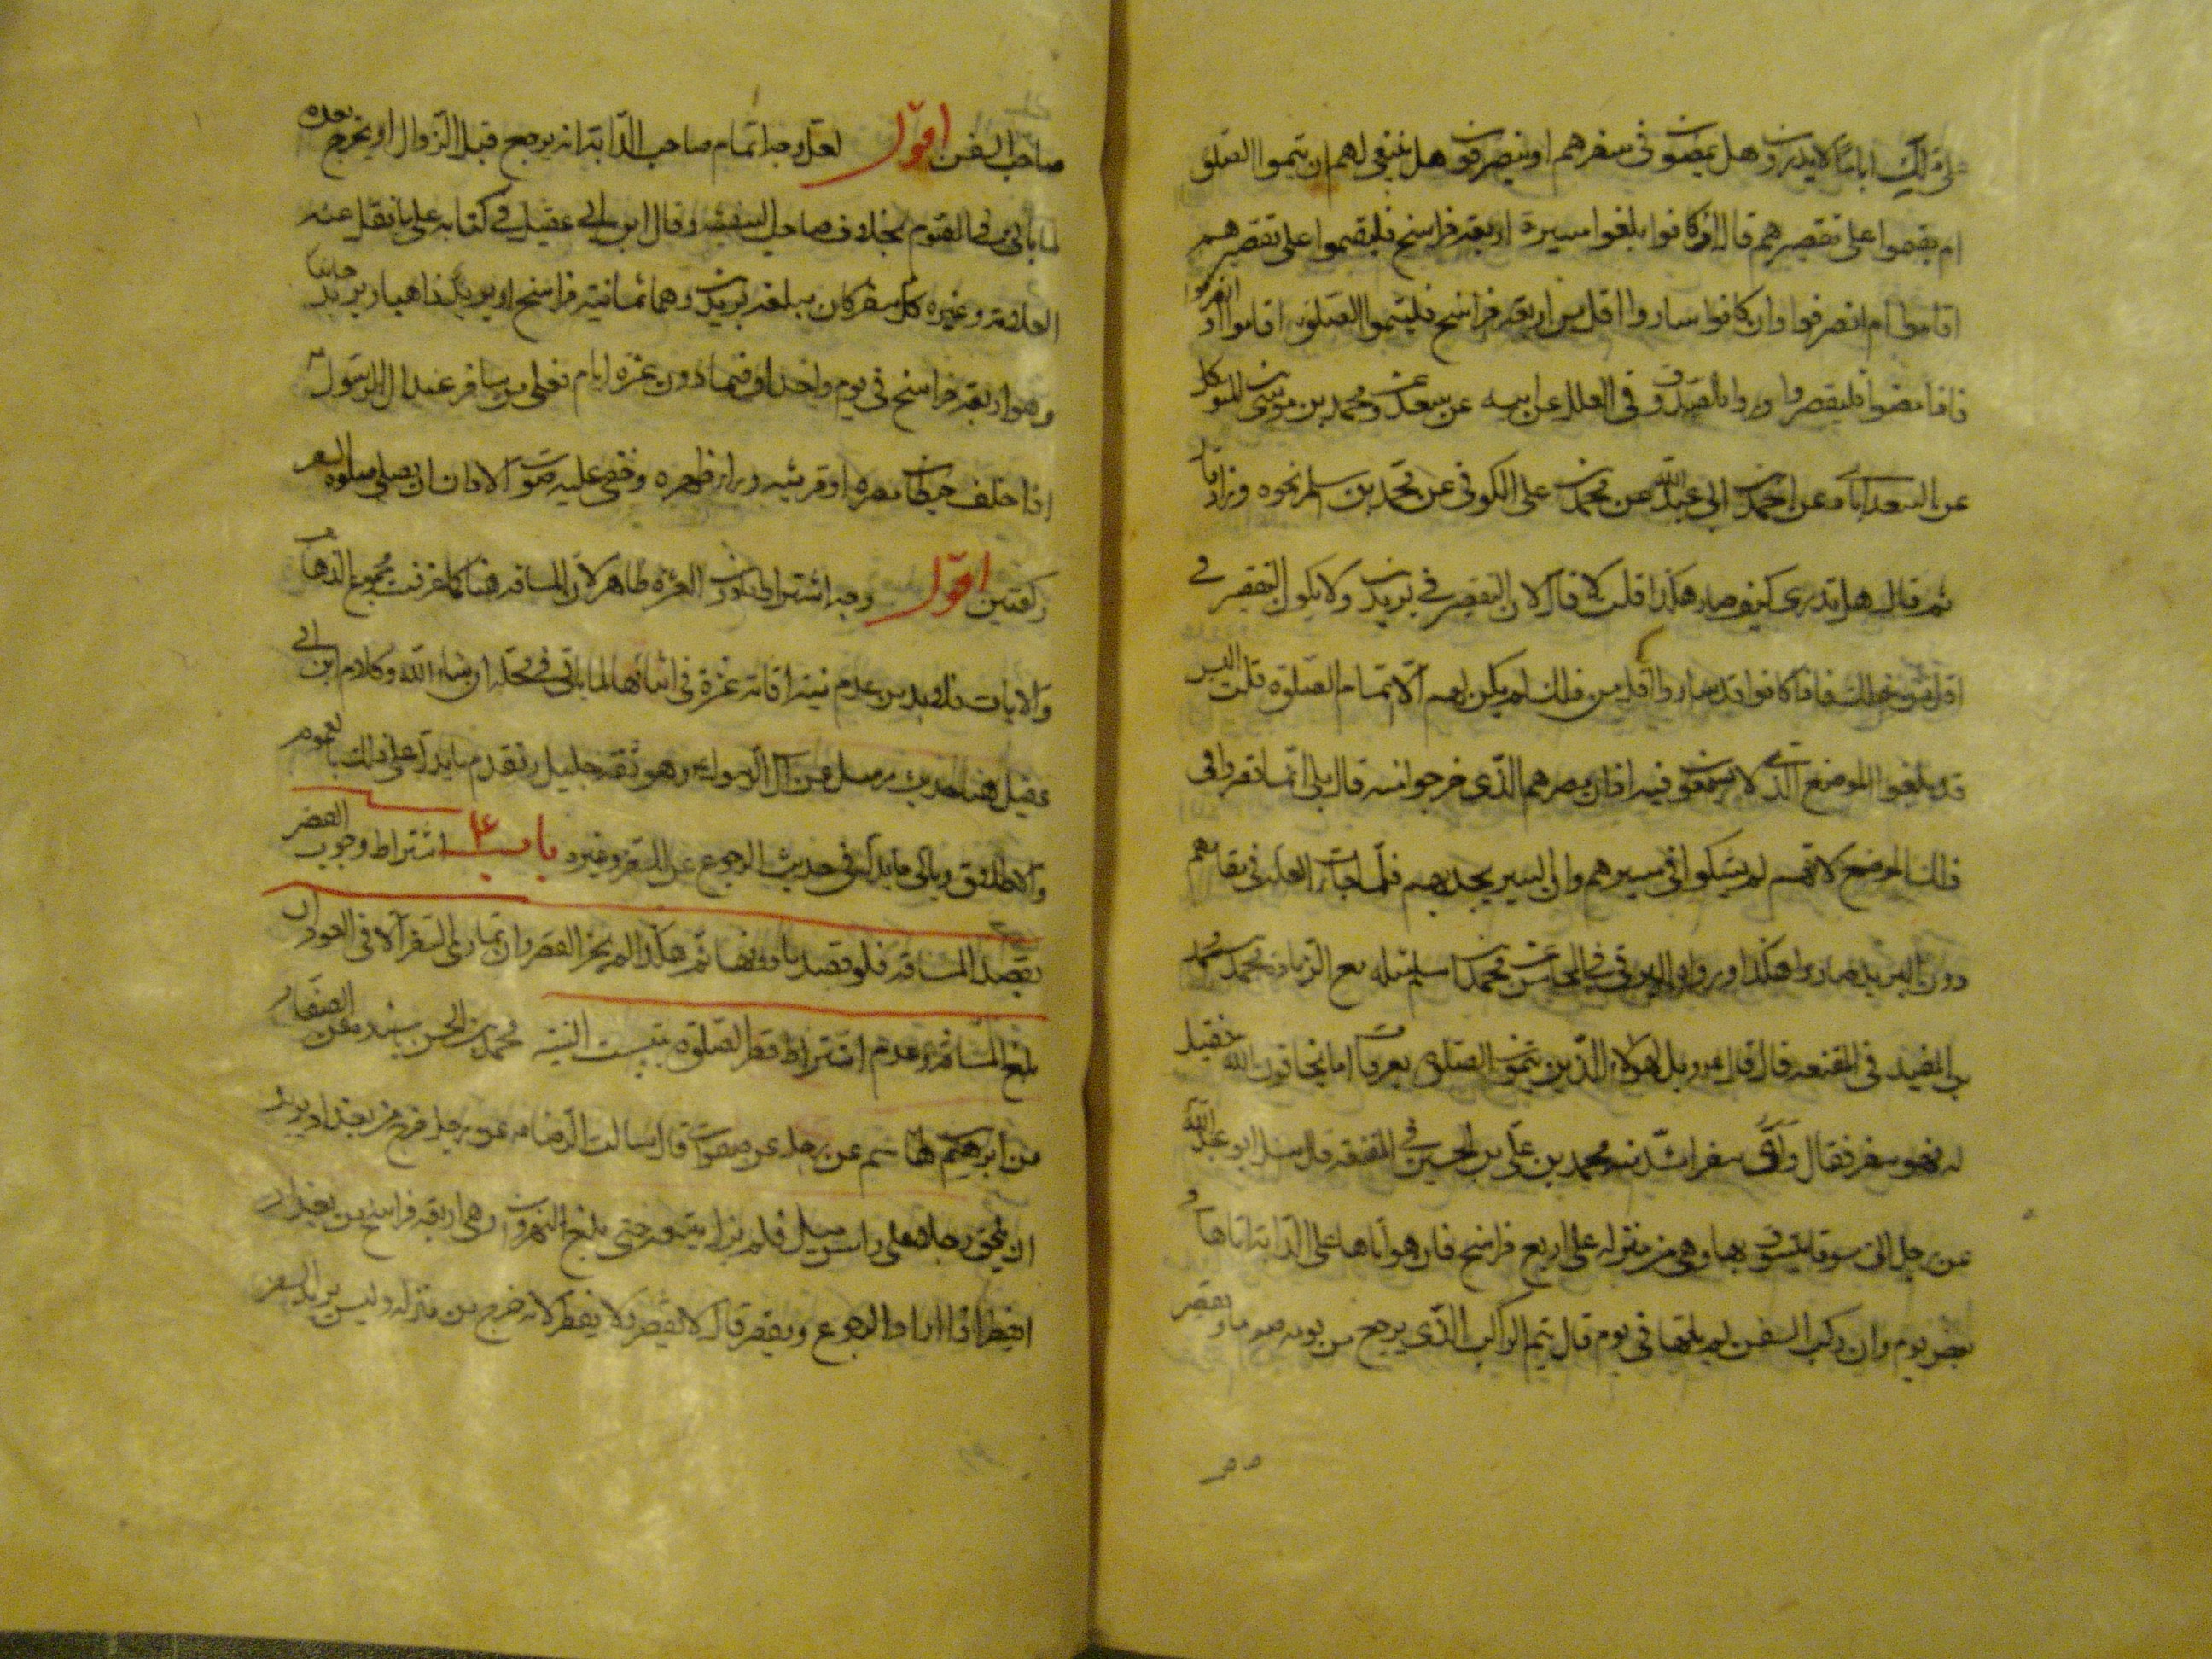 على ذلك اياما لا يدرون هل يمضون في سفرهم او ينصرفون هل ينبغي لهم ان يتموا الصلوة
ام يقيموا على تقصيرهم قال ان كانوا بلغوا مسيرة اربعة فراسخ فليقيموا على تقصيرهم
اقاموا ام انصرفوا وان كانوا ساروا اقل من اربعة فراسخ فليتموا الصلوة اقاموا او انصرفوا
فاذا مضوا فليقصروا ورواه الصدوق في العلل عن ابيه عن سعد و محمد بن موسى المتوكل
عن السعدابادي عن احمد بن ابي عبد الله عن محمد بن علي الكوفي عن محمد بن اسلم نحوه وزاد قال
ثم قال هل تدري كيف صار هكذا قلت لا قال لان التقصير في بريدين ولا يكون التقصير في
اقل من ذلك فاذا كانوا قد ساروا اقل من ذلك لم يكن لهم الا اتمام الصلوة قلت اليس
قد بلغوا الموضع الذي لا يسمعون فيه اذان مصرهم الذي خرجوا منه قال بلى انما قصروا في
ذلك الموضع لانهم لم يشكوا في مسيرهم وان السير يجد بهم فلما جاءت العلة في مقامهم
دون البريد صاروا هكذا ورواه البرقي في المحاسن عن محمد بن اسلم مثله مع الزيادة محمد بن محمد
بن المفيد في المقنعة قال قال ع ويل لهؤلاء الذين يتمون الصلوة بعرفات اما يخافون الله فقيل
له فهو سفر فقال واي سفر اشد منه محمد بن علي بن الحسين في المقنع قال سئل ابو عبد الله
عن رجل اتى سوقا يتسوق بها وهي من منزله على اربع فراسخ فان هو اتاها على الدابة اتاها في
بعض يوم وان ركب السفن لم ياتها في يوم قال يتم الراكب الذي يرجع من يومه صوما ويقصر
صاحب السفن اقول لعل وجه اتمام صاحب الدابة انه يرجع قبل الزوال او يخرج بعده
لما ياتي في الصوم بخلاف صاحب السفينة وقال ابن ابي عقيل في كتابه على ما نقل عنه
العلامة وغيره كل سفر كان مبلغه بريدين وهما ثمانية فراسخ او بريد ذاهبا وبريد جائيا
وهو اربعة فراسخ في يوم واحد او فيما دون عشرة ايام فعلى من سافر عند ال الرسول
اذا خلف حيطان مصره او قريته وراء ظهره وخفي عليه صوت الاذان ان يصلي صلوة السفر
ركعتين اقول وجه اشتراط كون العشرة ظاهر لان المسافة هنا كما عرفت مجموع الذهاب
والاياب فلا بد من عدم نية اقامة عشرة في اثنائها لما ياتي في محله ان شاء الله وكلام ابن ابي
عقيل هنا حديث مرسل عن آل الرسول وهو ثقة جليل وتقدم ما يدل على ذلك بالعموم
والاطلاق وياتي ما يدل عليه في حديث الرجوع عن السفر وغيره باب اشتراط وجوب القصر
بقصد المسافة فلو قصد ما دونها ثم هكذا لم يجز القصر وان تمادى السفر الا في العود ان
بلغ المسافة وعدم اشتراط قصر الصلوة بتبييت النية محمد بن الحسن باسناده عن الصفار
عن ابرهيم بن هاشم عن رجل عن صفوان قال سالت الرضا ع عن رجل خرج من بغداد يريد
ان يلحق رجلا على راس ميل فلم يزل يتبعه حتى بلغ النهروان وهي اربعة فراسخ من بغداد
ايفطر اذا اراد الرجوع ويقصر قال لا يقصر ولا يفطر لانه خرج من منزله وليس يريد السفر